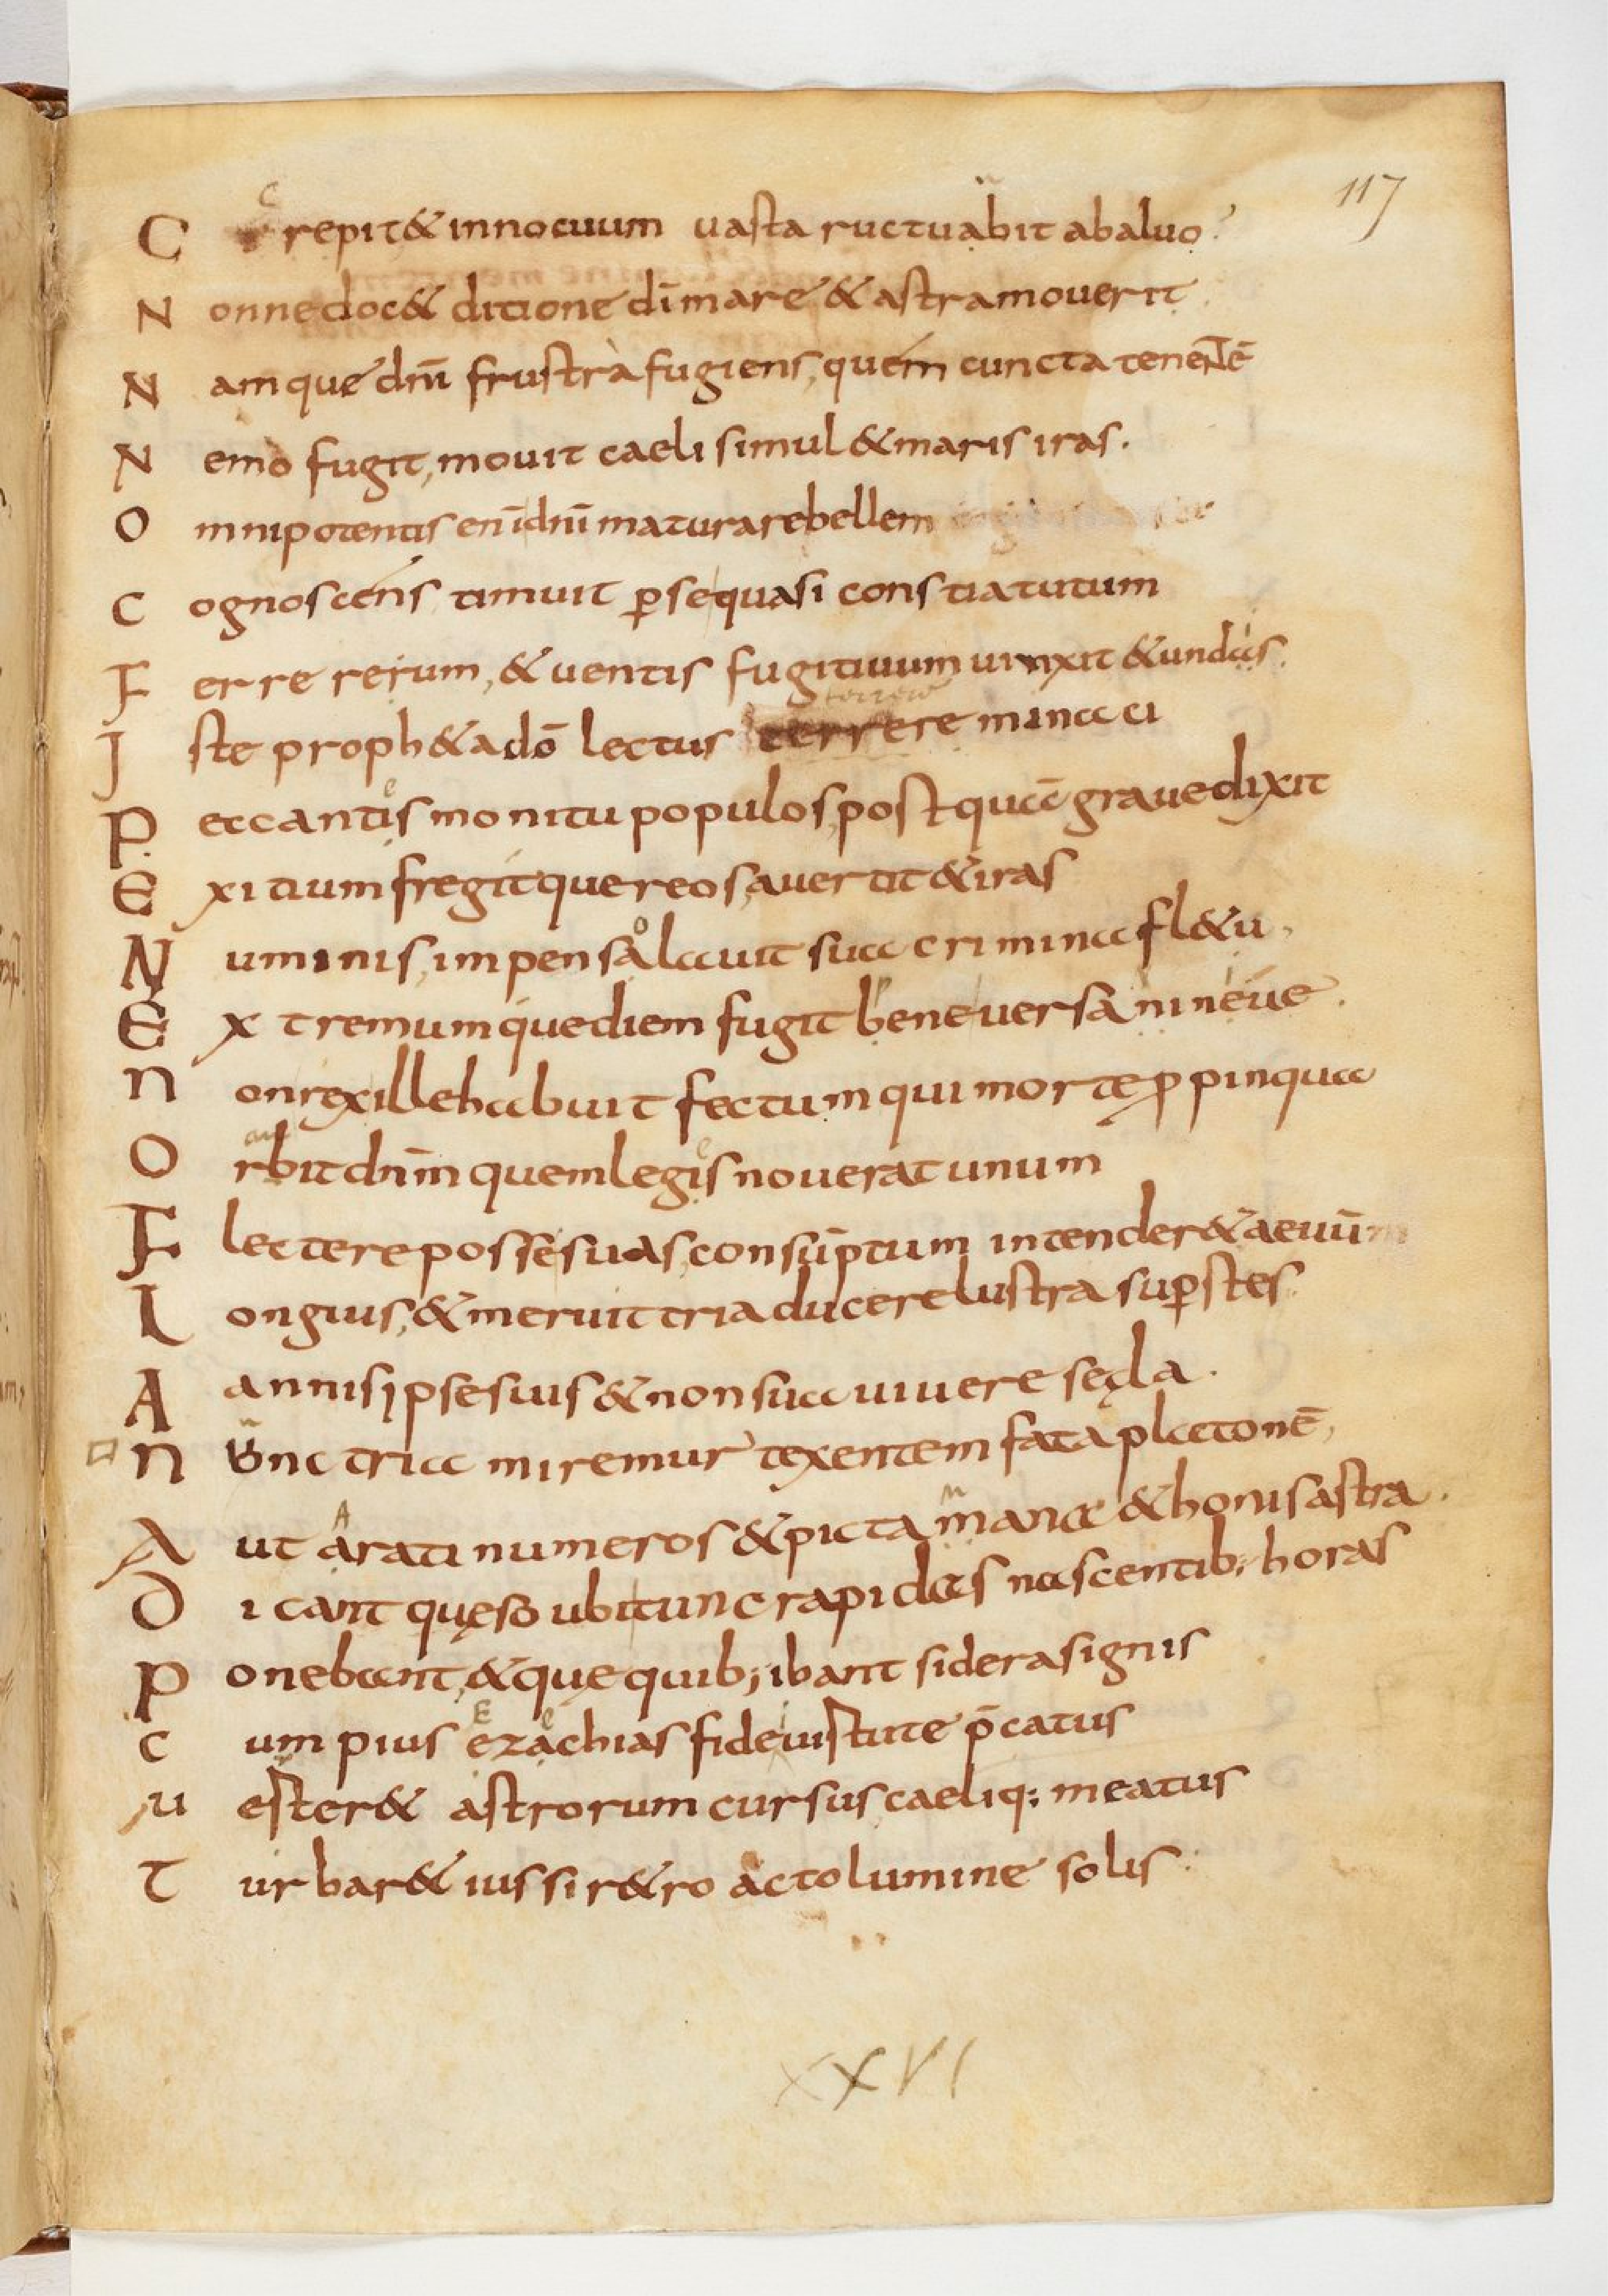 117
C repit & innocuum uasta ructuabit ab aluo
N onne doc& ditione dī mare & astra mouerit
N amque dnī frustra fugiens, quem cuncta tenentē
N emo fugit, mouit caeli simul & maris iras.
O mnipotentis enī dnī matura rebellem
C ognoscens timuit p se quasi constiatutum
F erre reium, & uentis fugitiuum uinxit & undas.
I ste proph& a dō lectus terrere minaci
P eccantis monitu populos, postquā graue dixit
E xitium fregitque reos, auertit & iras
N uminis, impensa lauit sua crimina fl&u,
E xtremumque diem fugit bene uersa nineue.
N on rex ille habuit fectum qui morte ppinqua
O rbit dnīm quem legis nouerat unum
F lectere posse suas, consūptum intender& aeuū
L ongius, & meruit tria ducere lustra supstes
A annis ipse suis & non sua uiuere sęcla.
N unc tria miremur texentem fata platonē,
A ut arati numeros & picta manae & honis astra.
D icant quęso ubi tunc rapidas nascentib; horas
P onebant, & quę quib; ibant sidera signis
C um pius ezachias fide iustite p̄catus
u ester& astrorum cursus, caeliq; meatus
T urbar& iussi r&ro acto lumine solis
XXVI